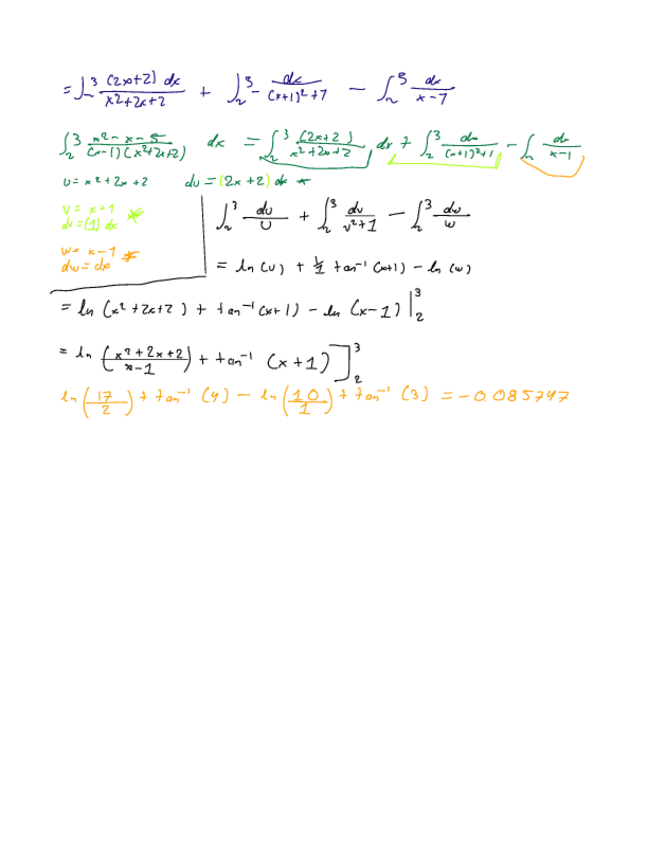 = ∫₂³ (2x+2) dx / x²+2x+2 + ∫₂³ - dx / (x+1)²+7 − ∫₂³ dx / x-7
∫₂³ x²-x-5 / (x-1)(x²+2x+2) dx = ∫₂³ (2x+2) / x²+2x+2 dx + ∫₂³ dx / (x+1)²+1 − ∫₂ dx / x-1
u = x²+2x+2 du = (2x+2) dx *
v = x+1
dv = (1) dx *
w = x-1
dw = dx *
∫₂³ du / u + ∫₂³ dv / v²+1 − ∫₂³ dw / w
= ln(u) + 1/1 tan⁻¹(x+1) − ln(w)
= ln(x²+2x+2) + tan⁻¹(x+1) − ln(x-1) |₂³
= ln(x²+2x+2 / x-1) + tan⁻¹(x+1)]₂³
ln(17/2) + tan⁻¹(4) − ln(10/1) + tan⁻¹(3) = -0.085747